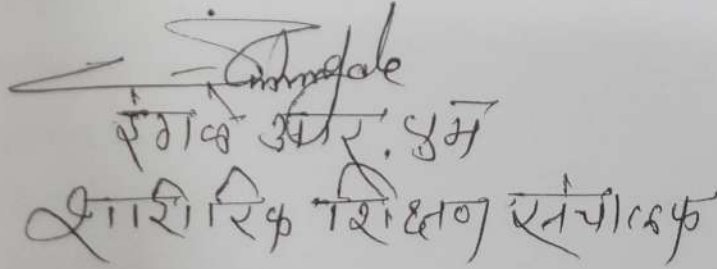 इंगळे आर. एम
शारिरिक शिक्षण संचालक